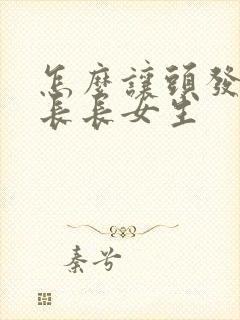 怎麼讓頭發
長長女生
秦兮